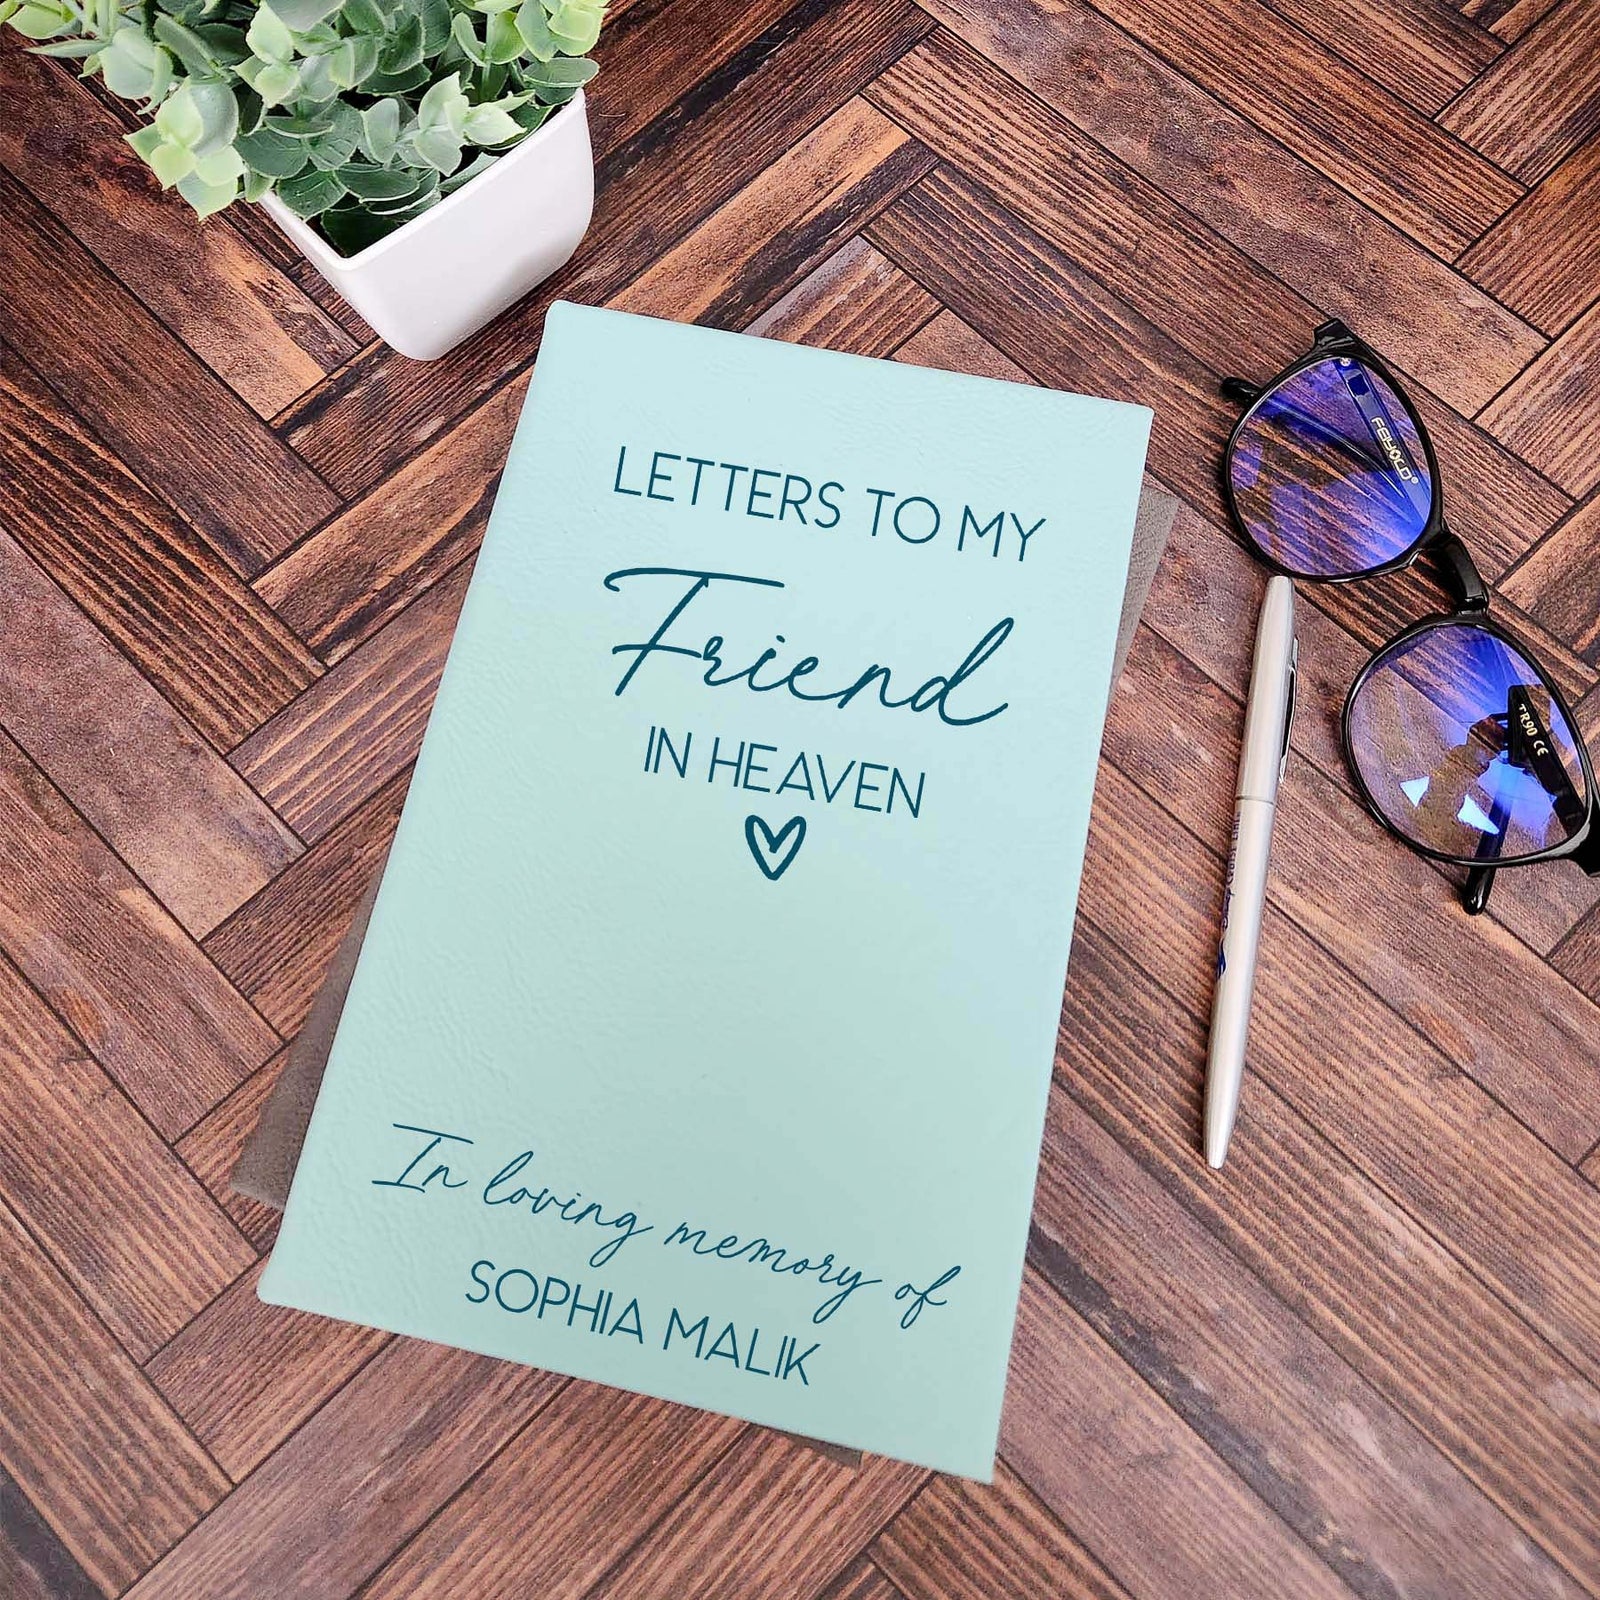 LETTERS TO MY
Friend
IN HEAVEN
In loving memory of
SOPHIA MALIK
FEIYOLD®
TR90 CE